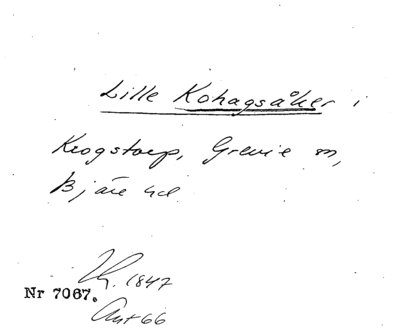 Lille Kohagsåker i
Krogstorp, Grevie sn,
Bjäre hd.
Nr 7067.
1847
Ant 66